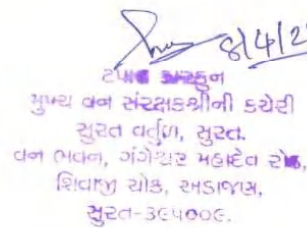 8/4/2
ટપાલ કારકુન
મુખ્ય વન સંરક્ષકશ્રીની કચેરી
સુરત વર્તુળ, સુરત.
વન ભવન, ગંગેશ્વર મહાદેવ રોડ,
શિવાજી ચોક, અડાજણ,
સુરત-૩૯૫૦૦૯.